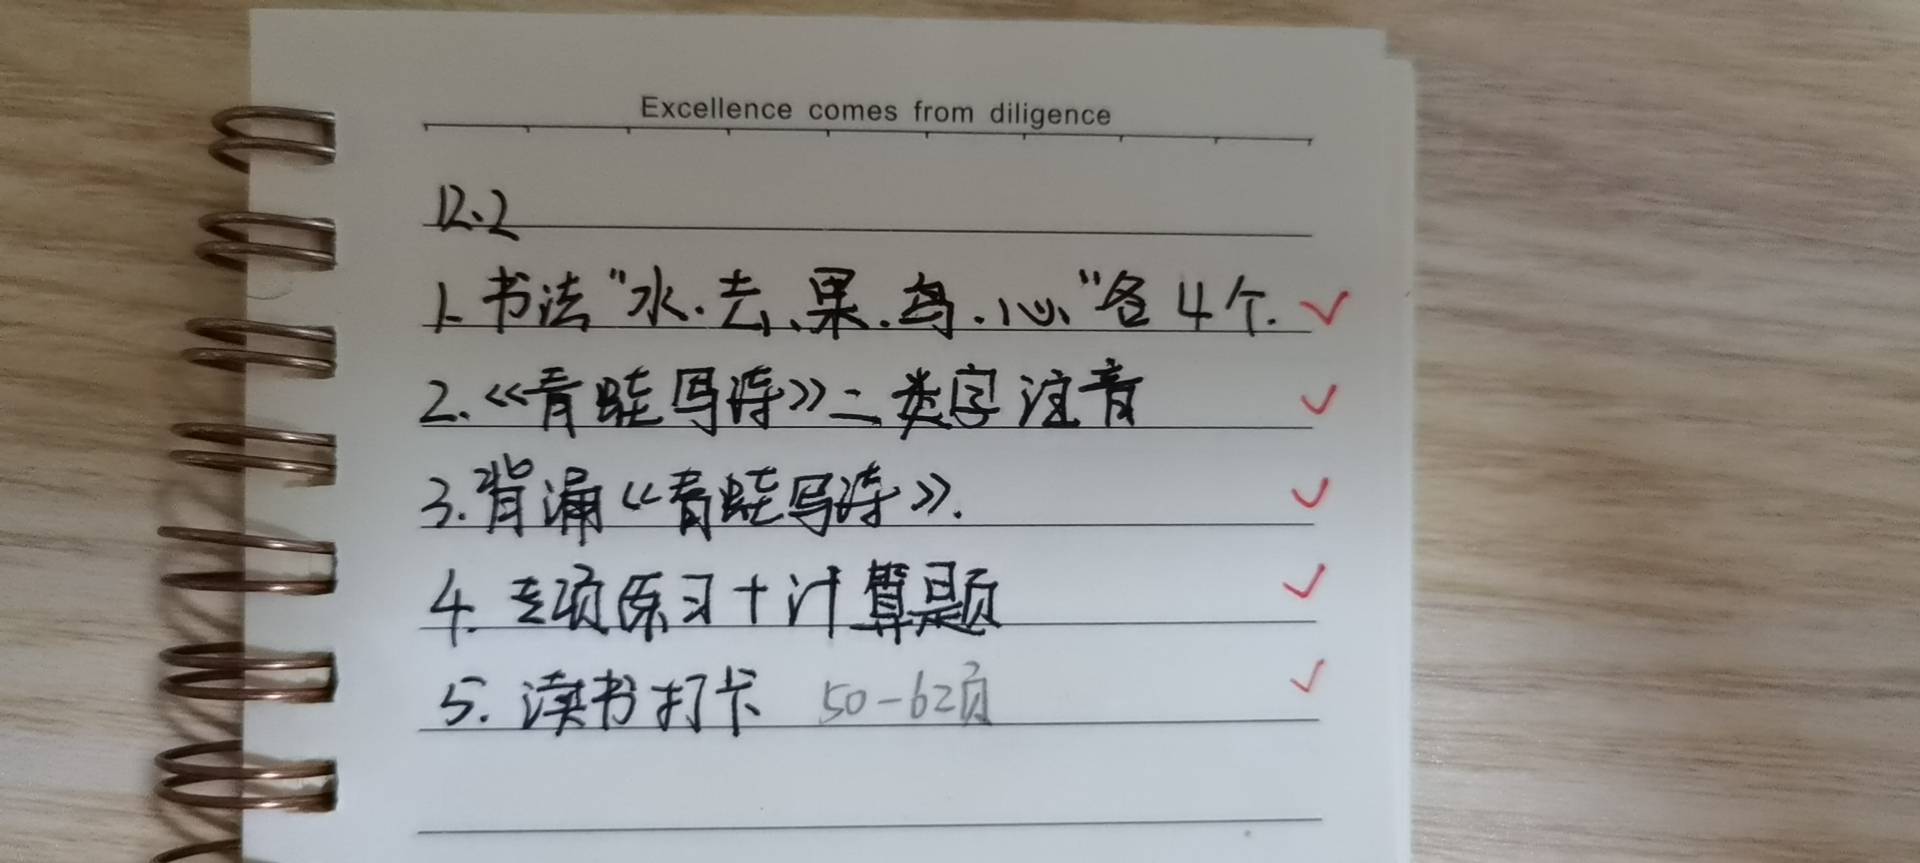 Excellence comes from diligence
12.2
1. 书法“水.去、果.鸟.心”各4个. ✓
2.《青蛙写诗》二类字注音 ✓
3.背诵《青蛙写诗》. ✓
4. 专项练习+计算题 ✓
5. 读书打卡 50-62页 ✓